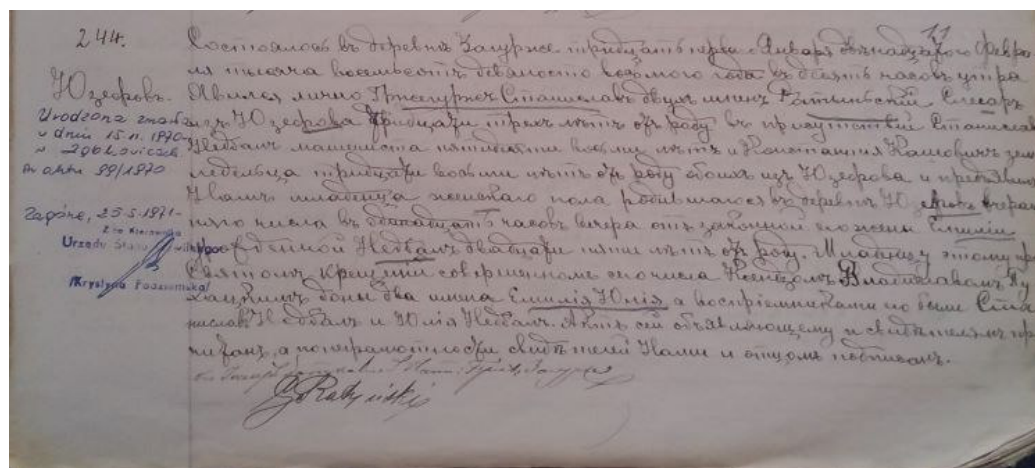 244.
Юзефовъ.
Urodzona zmarła
w dniu 15.11.1970
w
Nr aktu 99/1970
Zagórze, 25-5-1971
Z-ca Kierownika
Urzędu Stanu Cywilnego
Состоялось въ деревнѣ Загурже тридцать перв Января двѣнадцатого Февра
ля тысяча восемьсотъ девяносто восьмого года въ десять часовъ утра
Явился лично Станиславъ двухъ именъ Ратыньскій Слесарь
изъ Юзефова тридцати трехъ лѣтъ отъ роду въ присутствіи Станислава
Недбалъ машиниста пятидесяти восьми лѣтъ и Константія земле
дельца тридцати восьми лѣтъ отъ роду обоихъ изъ Юзефова и предъявилъ
Намъ младенца женскаго пола родившагося въ деревнѣ Юзефовъ вчераш
няго числа въ двенадцать часовъ вечера отъ законной его жены Емиліи
урожденной Недбалъ двадцати пяти лѣтъ отъ роду. Младенцу этому при
Святомъ Крещеніи совершенномъ сего числа Ксендзомъ Владиславомъ
даны два имена Емилія Юлія а воспріемниками его были Ста
ниславъ Недбалъ и Юлія Недбалъ. Актъ сей объявляющему и свидѣтелямъ про
читанъ, а по неграмотности свидѣтелей Нами и отцомъ подписанъ.
Ratyński